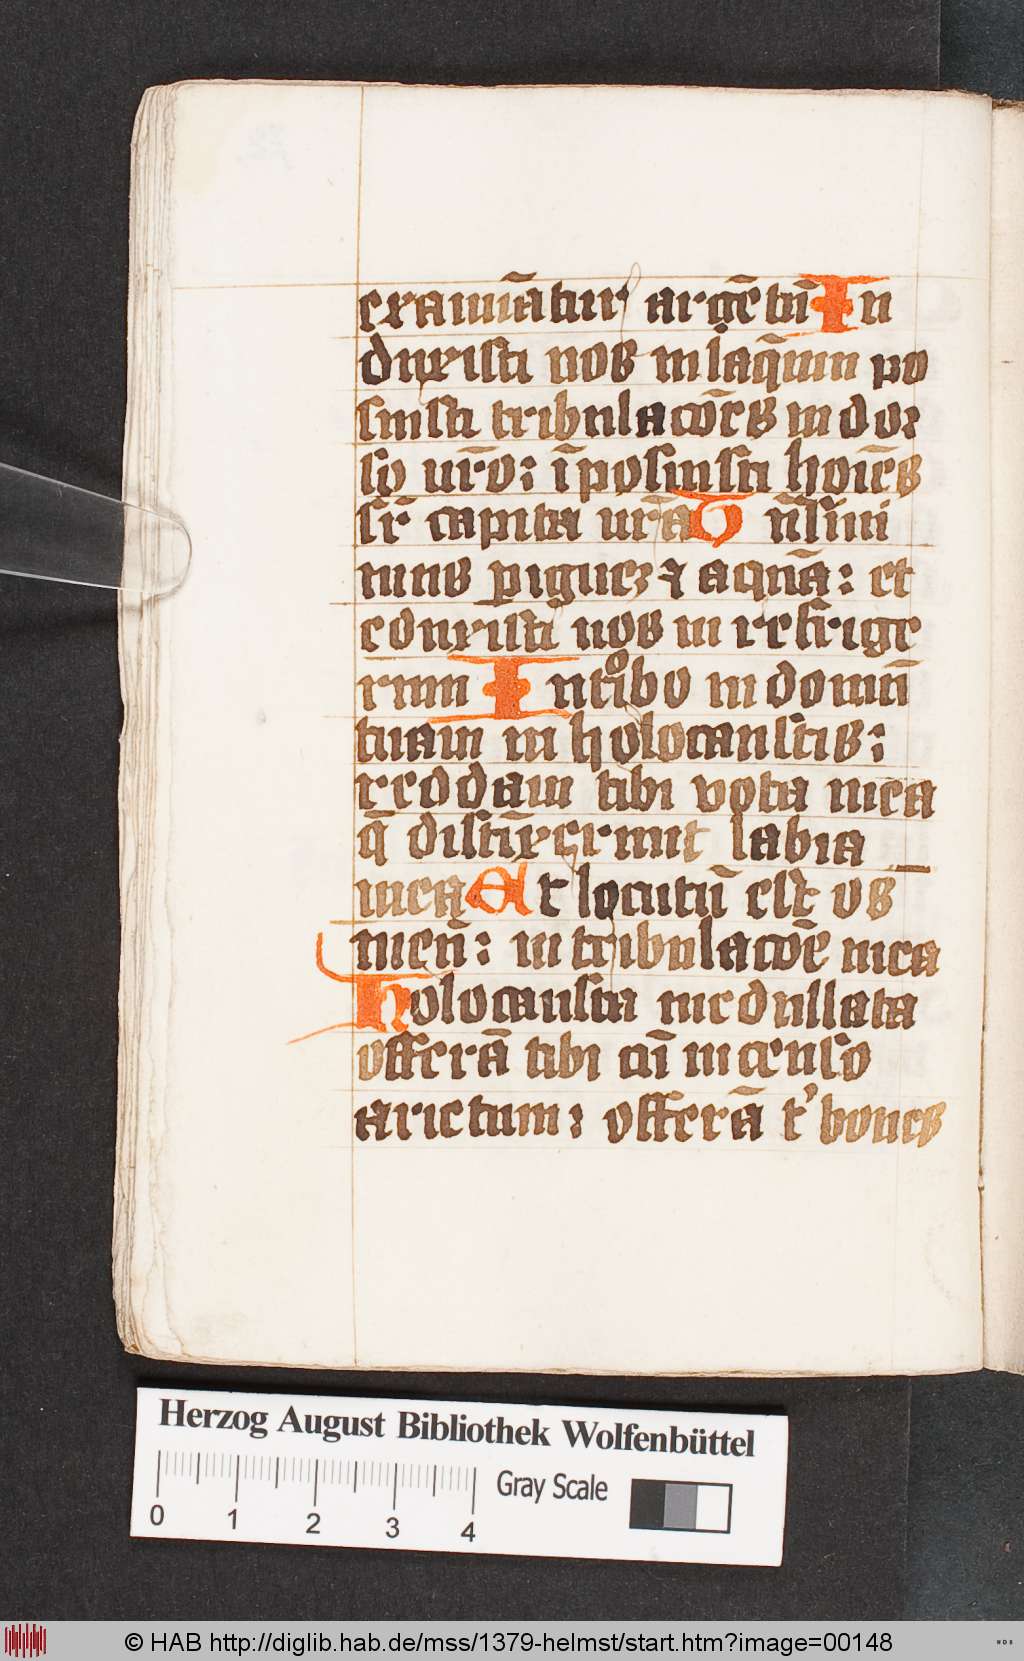 examinātur argētū In
duxisti nos in laq̄um po
suisti tribulacōēs in dor
so nr̄o: īposuisti hoīēs
sr̄ capita nr̄a Tn̄siui
mus p igneȝ ⁊ aquā: et
eduxisti nos in refrige
rium Introibo in domū
tuam in holocaustis:
reddam tibi vota mea
q̄ distīxerunt labia
mea Et locutū est os
meū: in tribulacōē mea
Holocausta medullata
offerā tibi cū incenso
arietum: offerā t' boues
Herzog August Bibliothek Wolfenbüttel
Gray Scale
0 1 2 3 4
© HAB http://diglib.hab.de/mss/1379-helmst/start.htm?image=00148
HAB